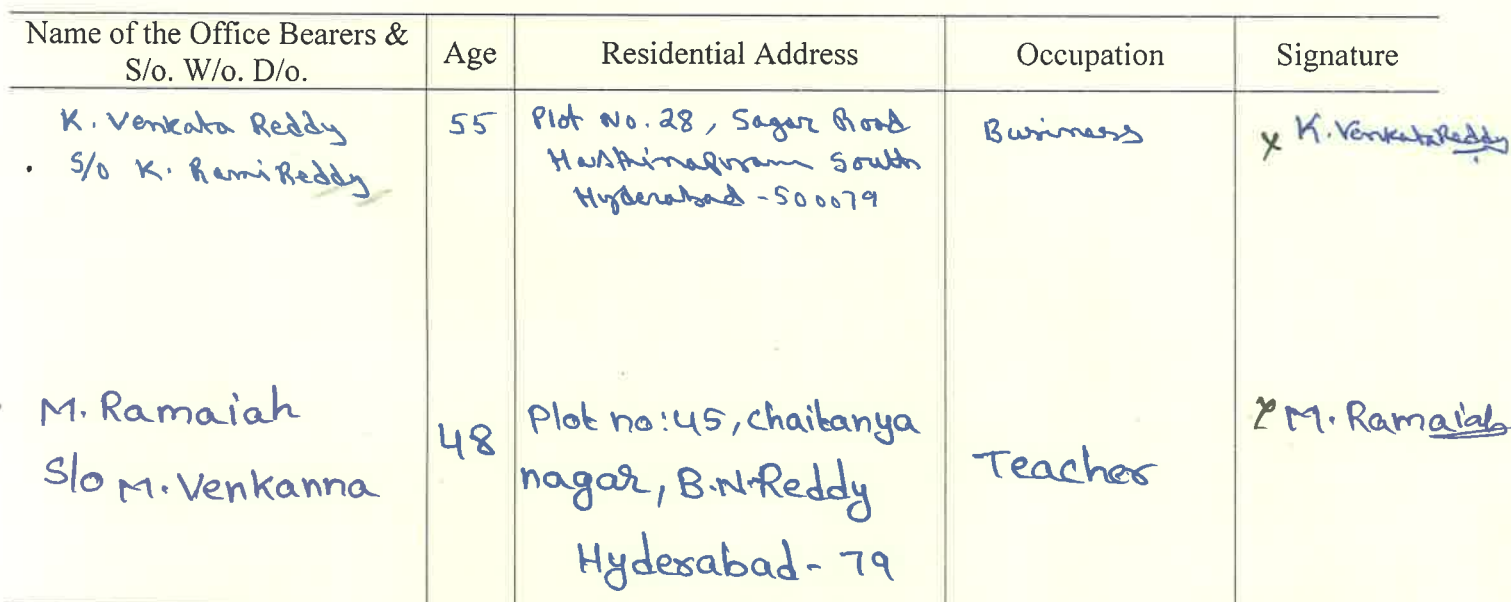 Name of the Office Bearers &
S/o. W/o. D/o.
Age
Residential Address
Occupation
Signature
K. Venkata Reddy
S/o K. Rami Reddy
55
Plot No. 28, Sagar Road
Hasthinapuram South
Hyderabad - 500079
Business
x K. Venkata Reddy
M. Ramaiah
S/o M. Venkanna
48
Plot no: 45, chaitanya
nagar, B.N. Reddy
Hyderabad - 79
Teacher
x M. Ramaiah